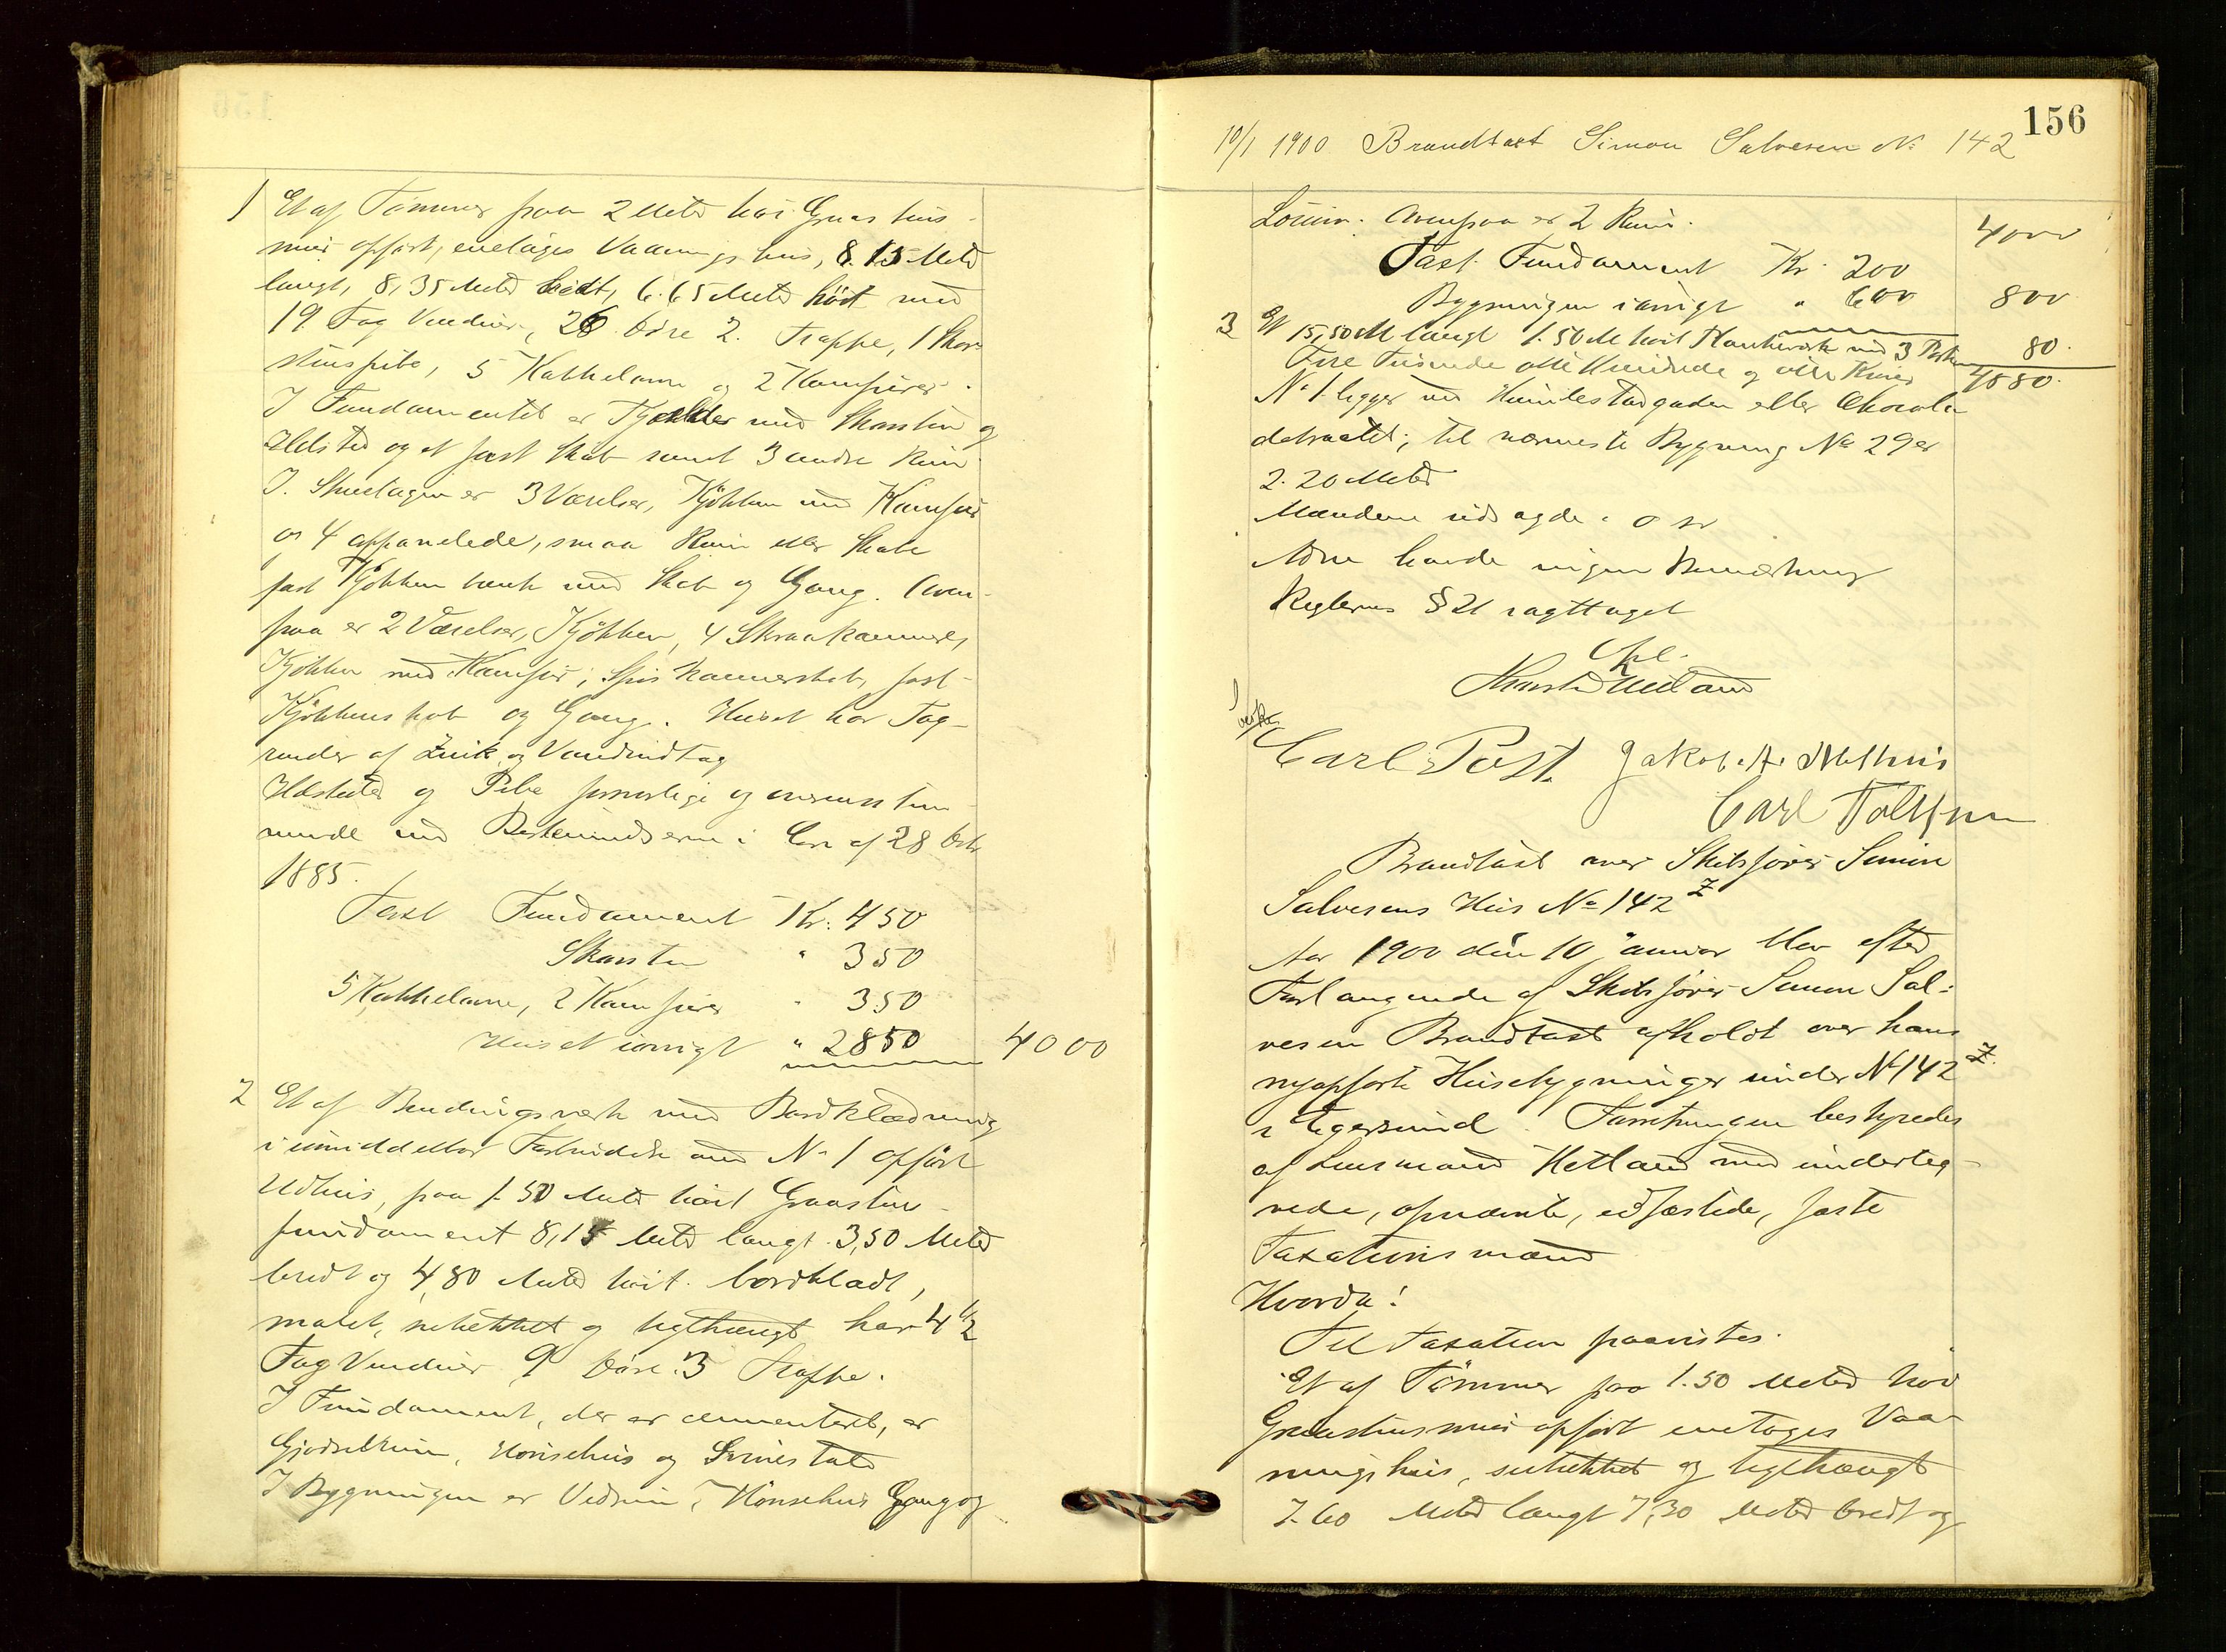 1 Et af Tømmer paa 2 Meter høi Graastens-
mur opført, enetages Vaaningshus, 8.15 Meter
langt, 8,35 Meter bredt, 6.65 Meter høit med
19 Fag Vinduer, 26 Døre 2 Trappe, 1 Skor-
stenspibe, 5 Kakkelovne og 2 Komfurer.
I Fundamentet er Kjælder med Skorsten og
Ildsted og et fast Skab samt 3 andre Rum
I Stuetagen er 3 Værelser, Kjøkken med Komfur
og 4 afpanelede, smaa Rum eller Skabe
fast Kjøkkenbænk med Skab og Gang. Oven-
paa er 2 Værelser, Kjøkken, 4 Skraakammere,
Kjøkken med Komfur, Spiskammerskab, fast
Kjøkkenskab og Gang. Huset har Tag-
render af Zink og Vandindtag
Ildsteder og Pibe forsvarlige og overensstem-
mende med Bestemmelserne i Lov af 28 Octr
1885.
Taxt Fundament Kr. 450
Skorsten " 350
5 Kakkelovne, 2 Komfurer " 350
Huset iøvrigt " 2850 4000
2 Et af Bindingsværk med Bordklædning
i umiddelbar Forbindelse med No 1 opført
Udhus, paa 1.50 Meter høit Graastens-
fundament 8,15 Meter langt 3,50 Meter
bredt og 4,80 Meter høit. bordklædt,
malet, sutækket og teglhængt har 4 1/2
Fag Vinduer 9 Døre 3 Trappe.
I Fundament, der er cementeret, er
Gjødselrum, Hønsehus og Svinestald
I Bygningen er Vedrum, Hønsehus Gang og
156
10/1 1900 Brandtaxt Simon Salvesen No 142
Ovenpaa er 2 Rum. 4000
Taxt Fundament Kr. 200
Bygningen iøvrigt " 600 800
3 Et 15,50 M langt 1.50 M høit Plankeværk med 3 Porte 80.
Fire Tusinde otte Hundrede og otti Kroner 4880.
No 1 ligger ved eller Chocola-
; til nærmeste Bygning No 29 er
2.20 Meter
Mændene udsagde: o sv
havde ingen Bemærkning
Reglernes § 21 iagttaget
Carl Post Jakob A.
Carl
Brandtaxt over Skibsfører Simon
Salvesens Hus No 142 Z
Aar 1900 den 10 Januar blev efter
Forlangende af Skibsfører Simon Sal-
vesen Brandtaxt afholdt over hans
nyopførte Husebygninger under No 142 Z.
i Egersund. Forretningen bestyredes
af Lensmand Hetland med underteg-
nede, opnævnte, edfæstede, faste
Taxationsmænd
Hvorda!
Til Taxation paavistes.
Et af Tømmer paa 1.50 Meter høi
Graastensmur opført enetages Vaa-
ningshus, sutækket og teglhængt
7.60 Meter langt 7,30 Meter bredt og